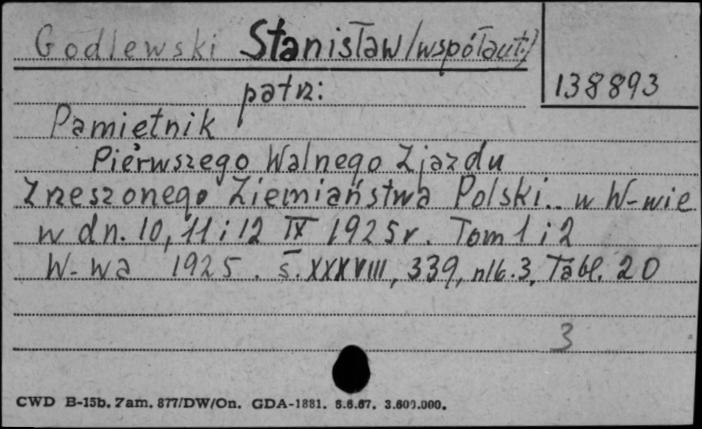 Godlewski Stanisław /współaut./
138893
patrz:
Pamiętnik
Pierwszego Walnego Zjazdu
Zrzeszonego Ziemiaństwa Polski.. w W-wie
w dn. 10, 11 i 12 IX 1925 r. Tom 1 i 2
W-wa 1925. s. XXXVIII, 339, nlb. 3, Tabl. 20
3
CWD B-15b. Zam. 877/DW/On. GDA-1881. 5.6.67. 3.600.000.